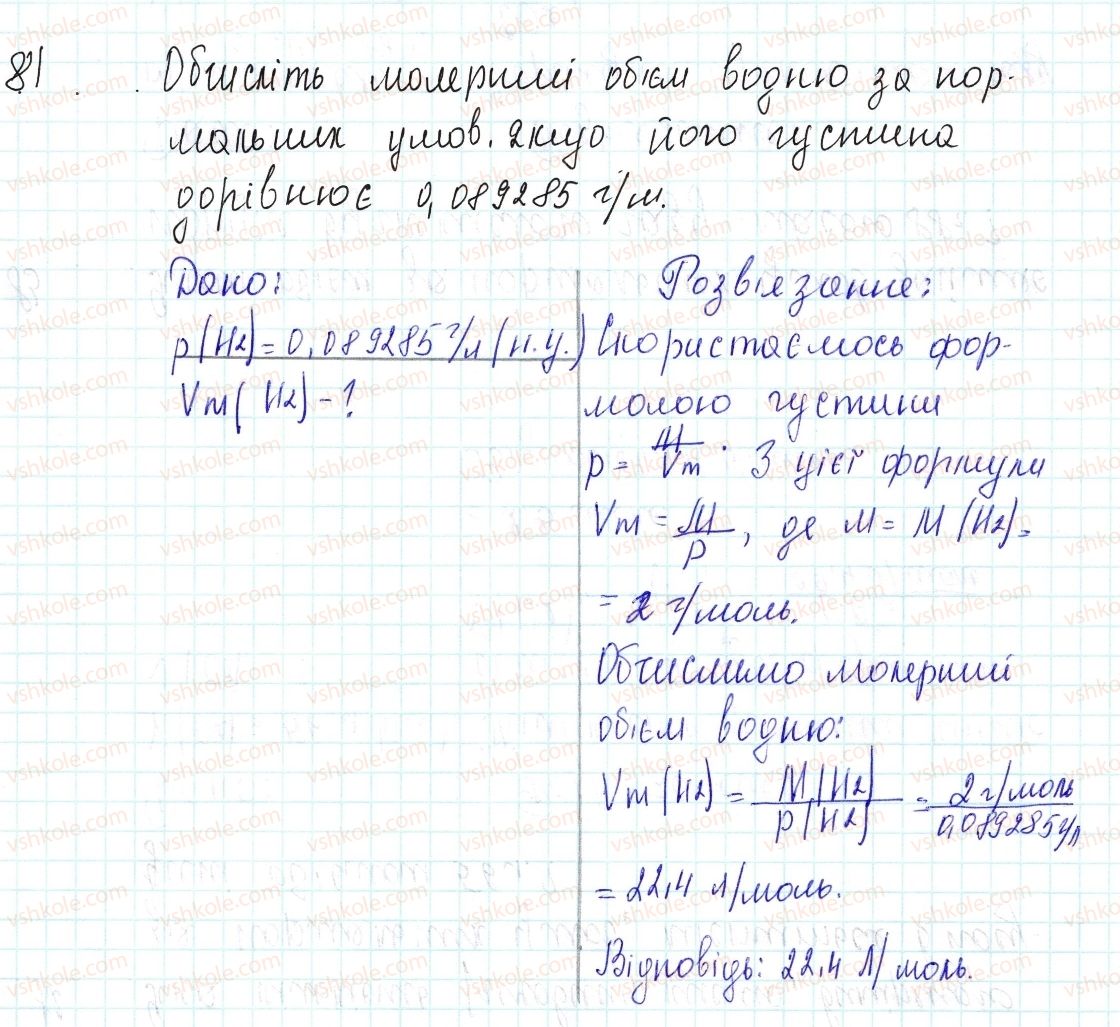 81. Обчисліть молерний обієм водню за нор-
мальних умов. якщо його густина
дорівнює 0,089285 г/м.
Дано:
p(H2)=0,089285 г/л (н.у.)
Vm(H2)-?
Розвіязання:
Скористаємось фор-
молою густини
p = M/Vm. З цієї формули
Vm = M/p, де M = M(H2)=
= 2 г/моль.
Обчислимо молерний
обієм водню:
Vm(H2) = M(H2)/p(H2) = 2 г/моль/0,089285 г/л
= 22,4 л/моль.
Відповідь: 22,4 л/моль.